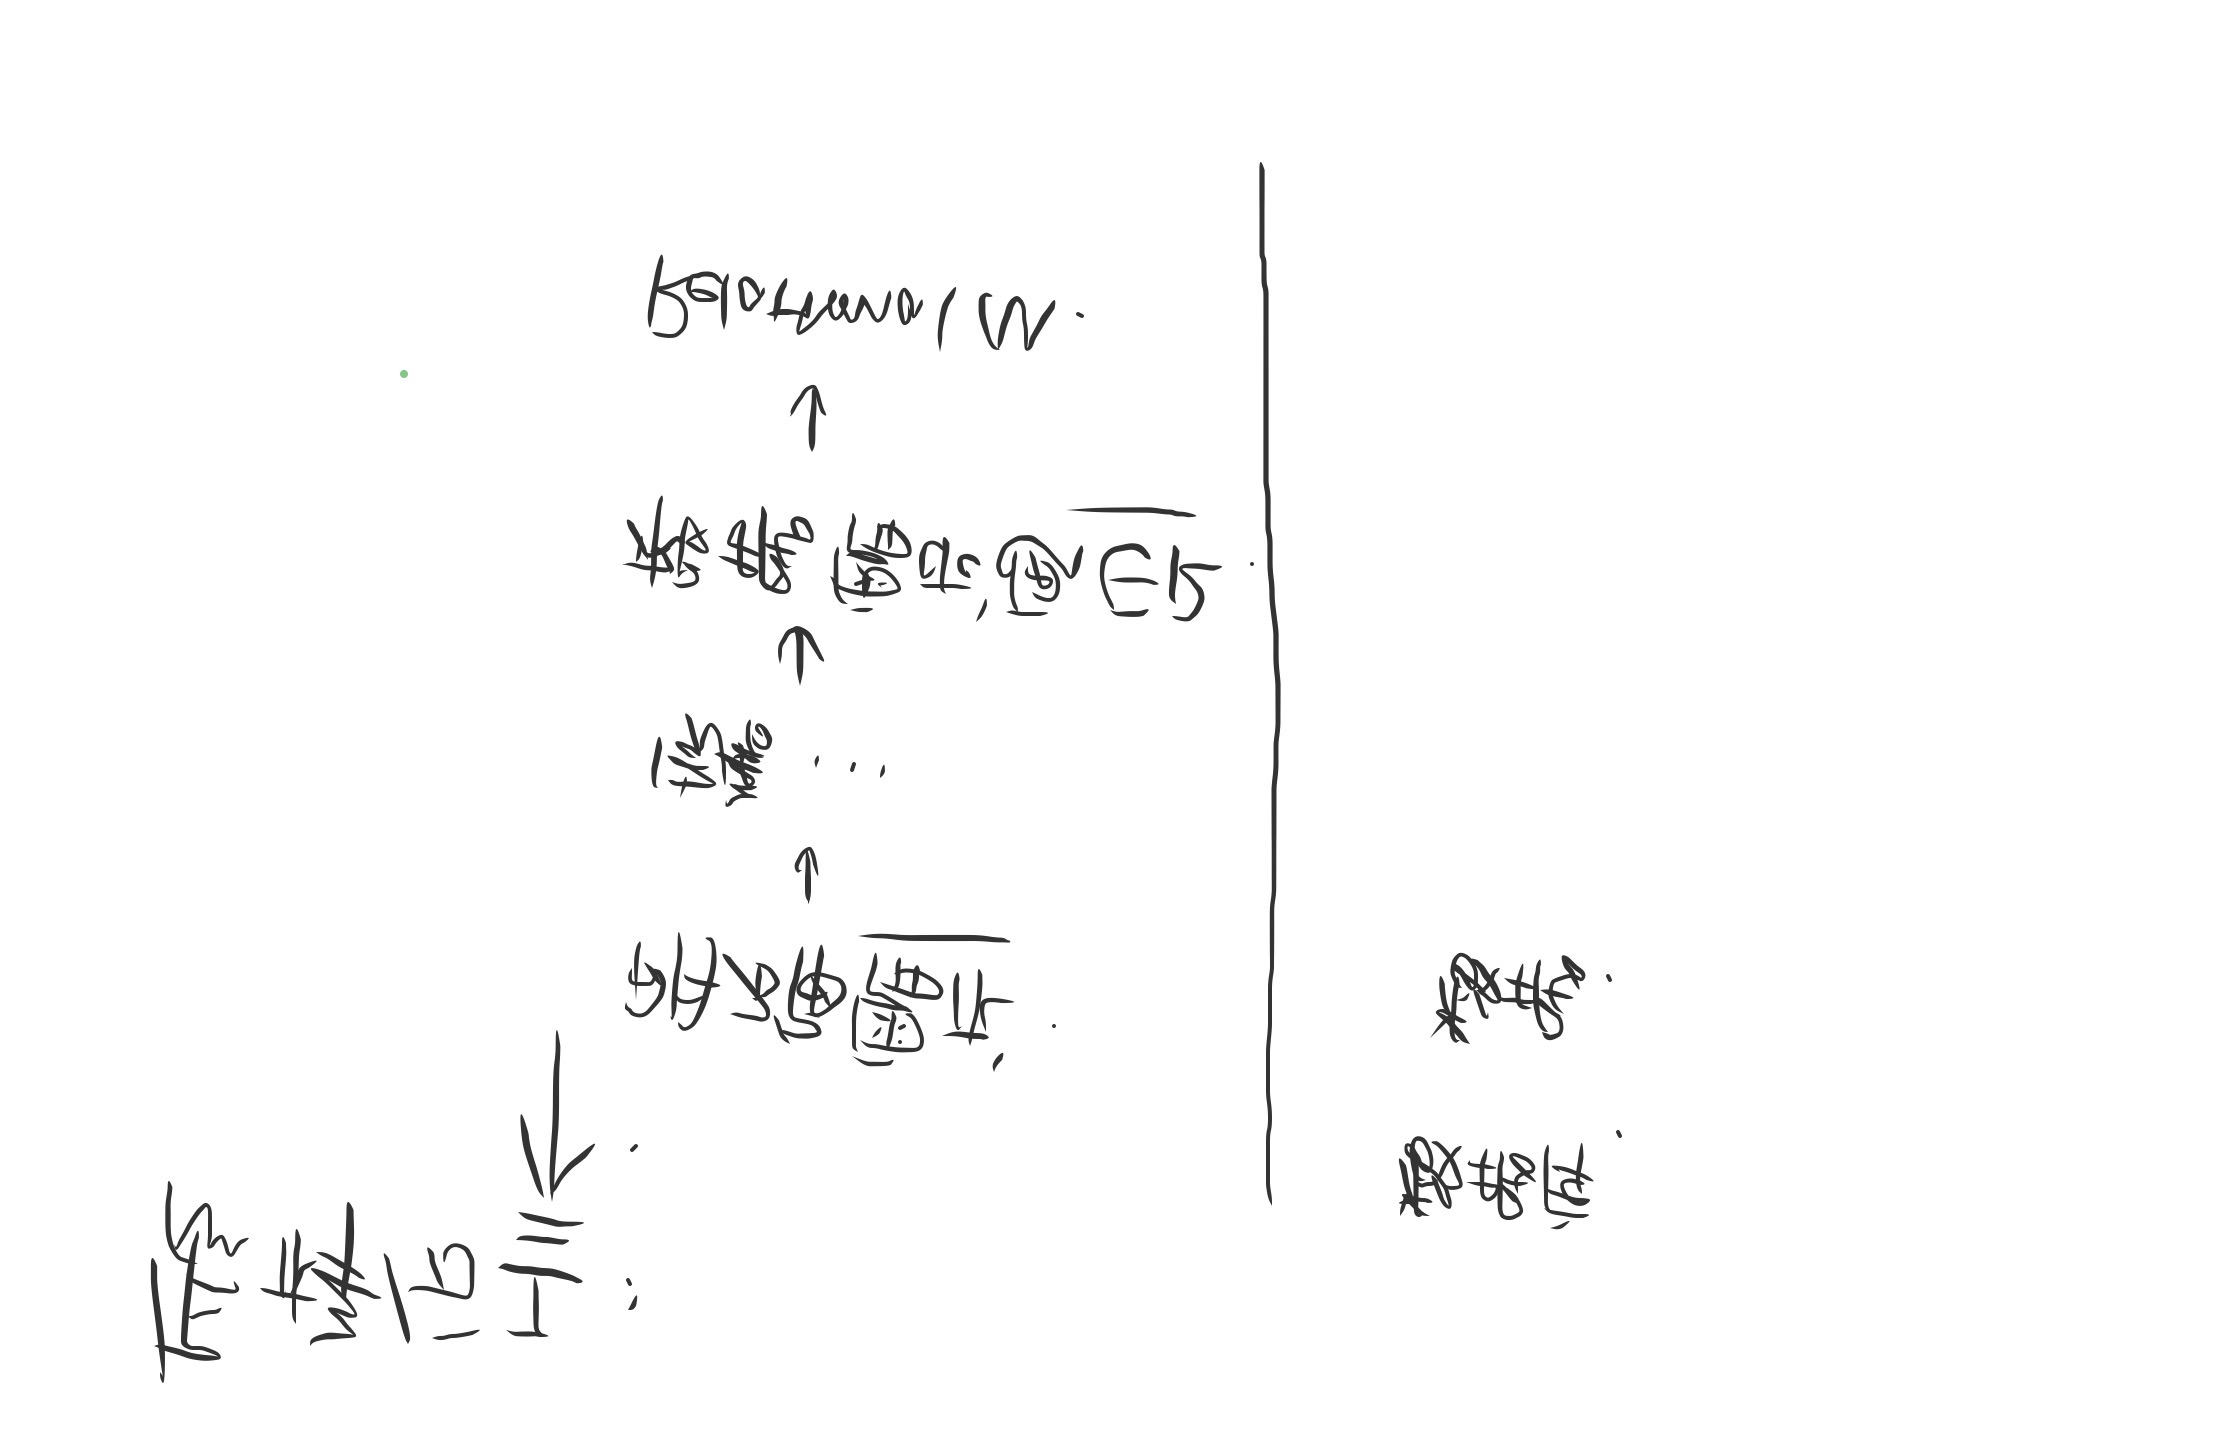 怎样分工:
明确需求.
完善...
根据需求画ER.
Relational M.
数据库.
数据.